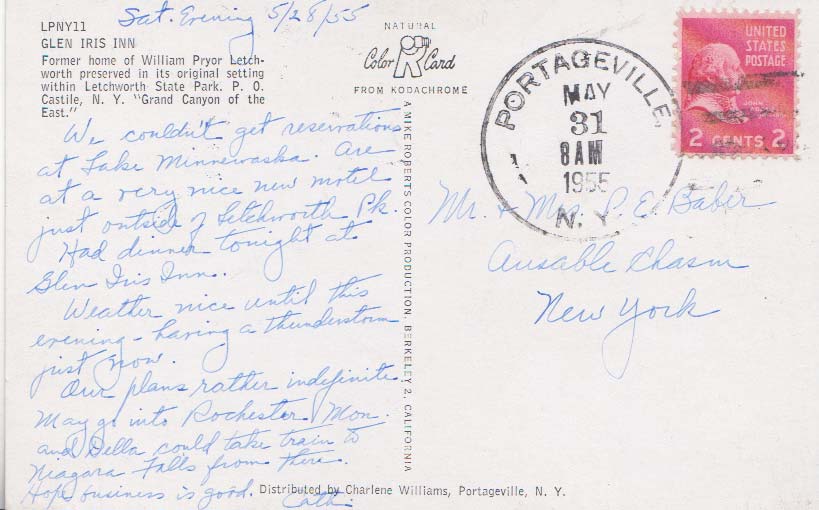 Sat. Evening 5/28/55
LPNY11
GLEN IRIS INN
Former home of William Pryor Letch-
worth preserved in its original setting
within Letchworth State Park. P. O.
Castile, N. Y. "Grand Canyon of the
East."
We couldn't get reservations
at Lake Minnewaska. Are
at a very nice new motel
just outside of Letchworth Pk.
Had dinner tonight at
Glen Iris Inn.
Weather nice until this
evening - having a thunderstorm
just now.
Our plans rather indefinite.
May go into Rochester Mon.
and Della could take train to
Niagara Falls from there.
Hope business is good.
Cath.
NATURAL
Color Card
FROM KODACHROME
A MIKE ROBERTS COLOR PRODUCTION, BERKELEY 2, CALIFORNIA
PORTAGEVILLE,
MAY
31
8 AM
1955
N. Y.
UNITED
STATES
POSTAGE
JOHN
2 CENTS 2
Mr. + Mrs. P. E. Baber
Ausable Chasm
New York
Distributed by Charlene Williams, Portageville, N. Y.